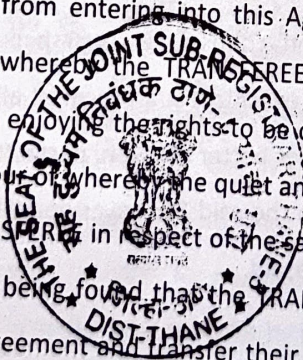 from entering into this A
whereby the TRANSFEREE
enjoying the rights to be
our of whereby the quiet an
in respect of the sa
being found that the TRAN
reement and transfer their
THE SEAL OF THE JOINT SUB-REGISTRAR THANE-3
सह दुय्यम निबंधक ठाणे
DIST. THANE